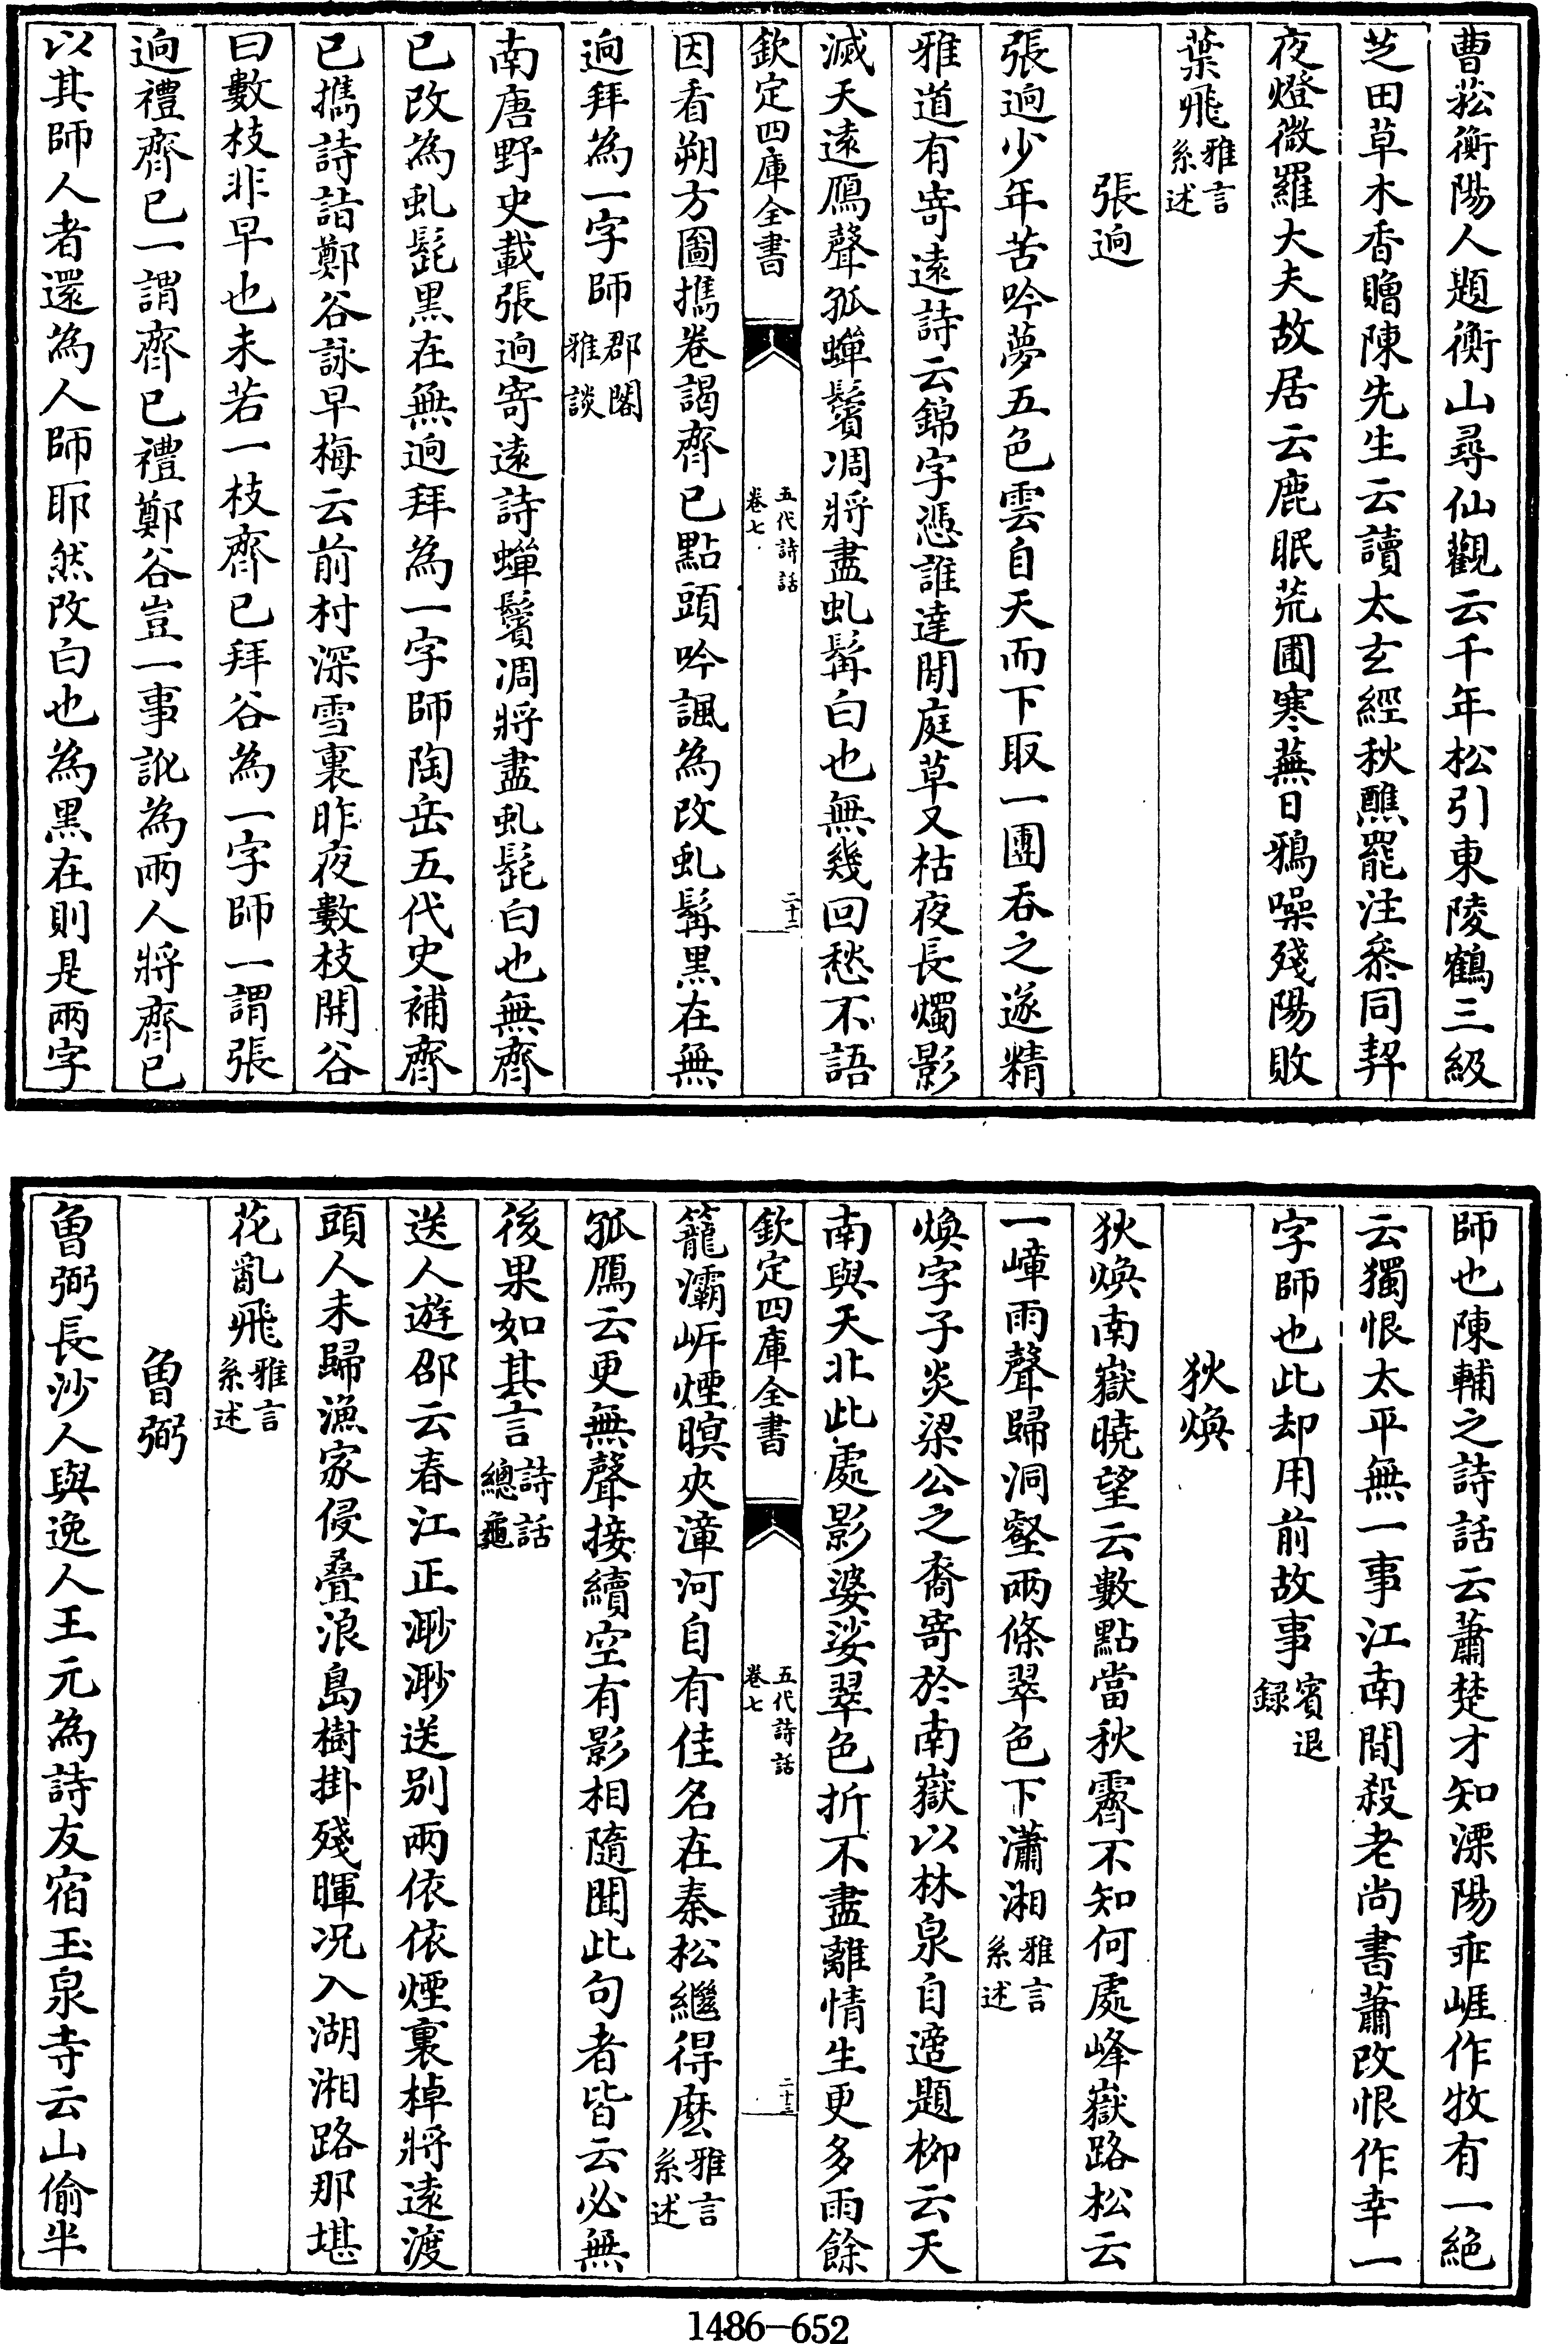 曹菘衡陽人題衡山尋仙觀云千年松引東陵鶴三級
芝田草木香贈陳先生云讀太玄經秋醮罷注叅同契
夜燈微羅大夫故居云鹿眠荒圃寒蕪日鴉噪殘陽敗
葉飛雅言系述
張逈
張逈少年苦吟夢五色雲自天而下取一團吞之遂精
雅道有寄遠詩云錦字憑誰達閒庭草又枯夜長燭影
滅天遠鴈聲孤蟬鬢凋將盡虬髯白也無幾回愁不語
欽定四庫全書
五代詩話
卷七
二十二
因看朔方圖攜卷謁齊已點頭吟諷為改虬髯黑在無
逈拜為一字師郡閣雅談
南唐野史載張逈寄遠詩蟬鬢凋將盡虬髭白也無齊
已改為虬髭黑在無逈拜為一字師陶岳五代史補齊
已攜詩詣鄭谷詠早梅云前村深雪裏昨夜數枝開谷
曰數枝非早也未若一枝齊已拜谷為一字師一謂張
逈禮齊已一謂齊已禮鄭谷豈一事訛為兩人將齊已
以其師人者還為人師耶然改白也為黑在則是兩字
師也陳輔之詩話云蕭楚才知溧陽乖崖作牧有一絶
云獨恨太平無一事江南閒殺老尚書蕭改恨作幸一
字師也此却用前故事賓退録
狄煥
狄煥南嶽曉望云數點當秋霽不知何處峰嶽路松云
一嶂雨聲歸洞壑兩條翠色下瀟湘雅言系述
煥字子炎梁公之裔寄於南嶽以林泉自適題栁云天
南與天北此處影婆娑翠色折不盡離情生更多雨餘
欽定四庫全書
五代詩話
卷七
二十三
籠灞岍煙暝夾漳河自有佳名在秦松繼得麼雅言系述
孤鴈云更無聲接續空有影相隨聞此句者皆云必無
後果如其言詩話總龜
送人遊邵云春江正渺渺送别兩依依煙裏棹將遠渡
頭人未歸漁家侵叠浪島樹掛殘暉况入湖湘路那堪
花亂飛雅言系述
魯弼
魯弼長沙人與逸人王元為詩友宿玉泉寺云山偷半
1486—652